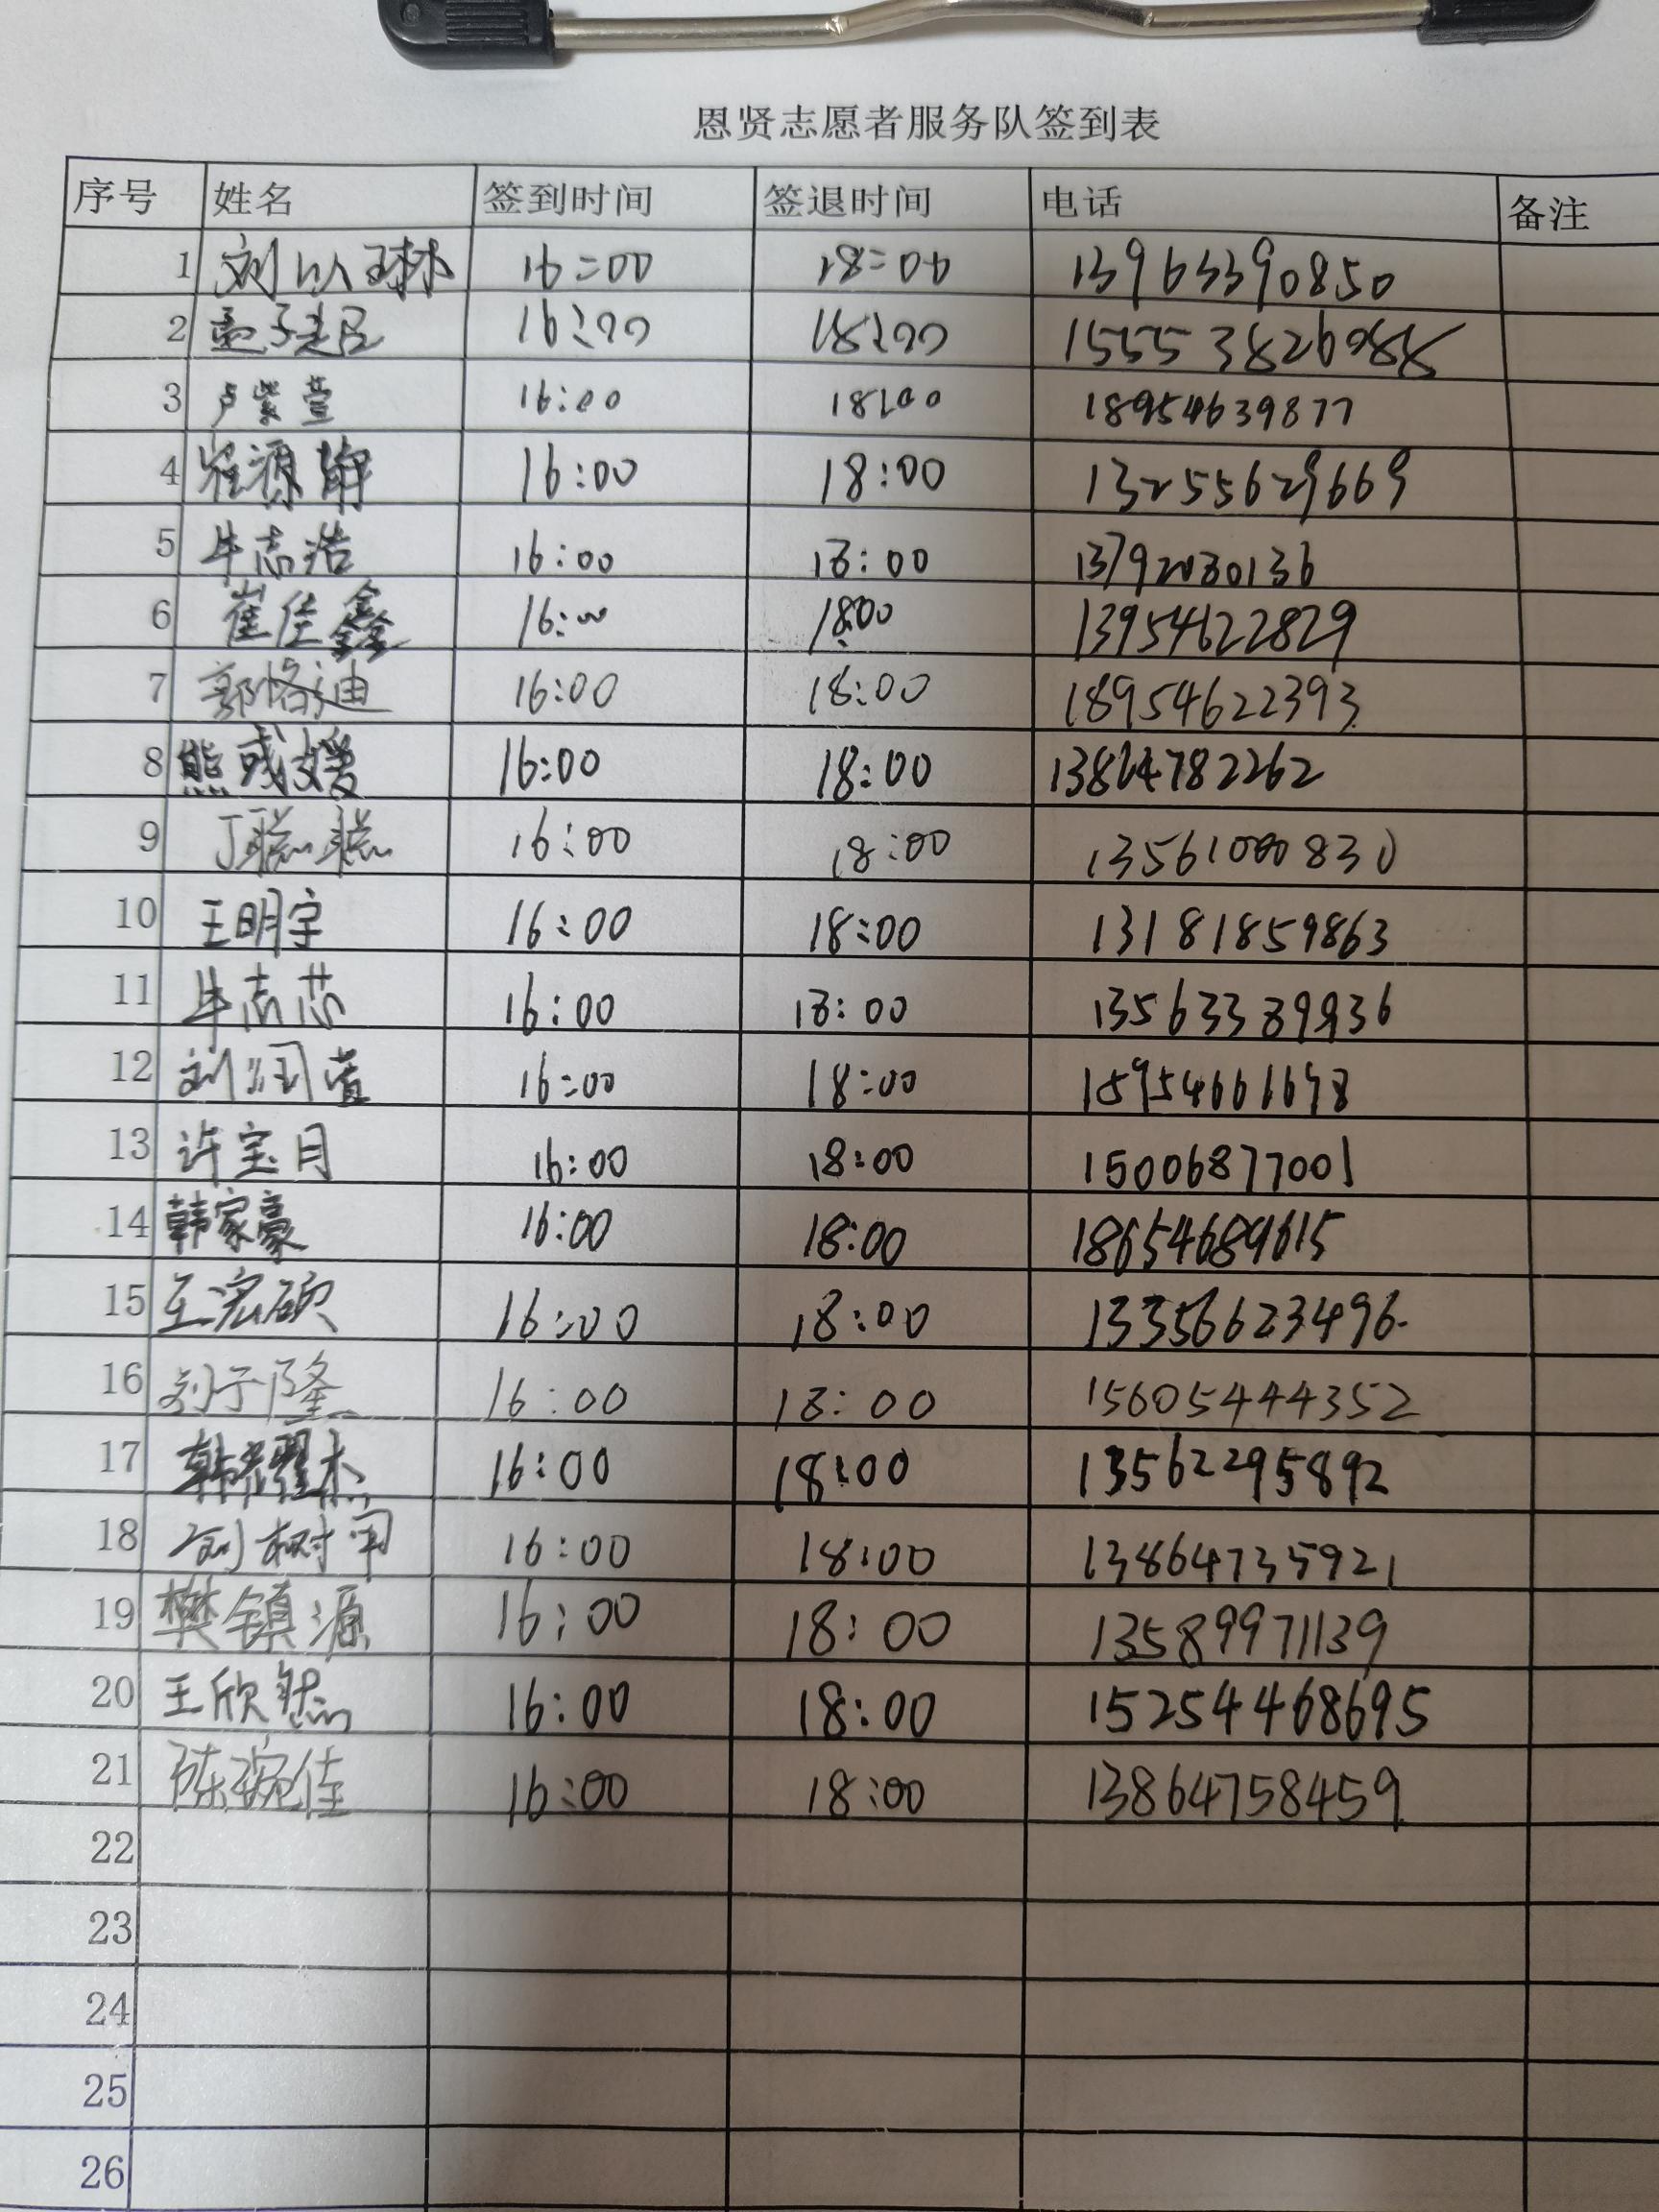 恩贤志愿者服务队签到表
序号 姓名 签到时间 签退时间 电话 备注
1 刘以琳 16:00 18:00 13963390850
2 孟子 16:00 18:00
3 卢紫萱 16:00 18:00 18954639877
4 崔源 16:00 18:00 13255629669
5 牛志浩 16:00 18:00 13792080136
6 崔佳鑫 16:00 18:00 13954622829
7 郭恪迪 16:00 18:00 18954622393
8 熊彧媛 16:00 18:00 13864782262
9 丁 16:00 18:00 13561000830
10 王明宇 16:00 18:00 13181859863
11 牛志芯 16:00 18:00 13563389936
12 刘润萱 16:00 18:00 15954661698
13 许宝月 16:00 18:00 15006877001
14 韩家豪 16:00 18:00 18654689615
15 王宏硕 16:00 18:00 13356623496
16 刘子隆 16:00 18:00 15605444352
17 韩耀杰 16:00 18:00 13562295892
18 刘树 16:00 18:00 13864735921
19 樊镇源 16:00 18:00 13589971139
20 王欣然 16:00 18:00 15254468695
21 陈琬佳 16:00 18:00 13864758459
22
23
24
25
26